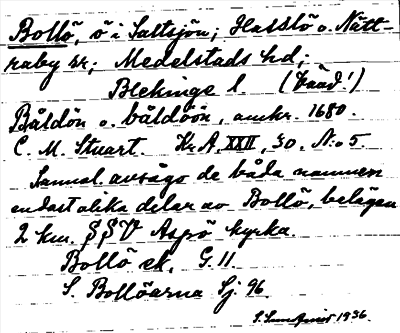 Bollö, ö i Saltsjön; Hasslö o. Nätt-
raby sr; Medelstads hd;
Blekinge l. (båd!)
Båldön o. båldöön, omkr. 1680.
C. M. Stuart. Kr. A. XXII, 30. N:o 5
Sannol. avsågo de båda namnen
endast olika delar av Bollö, belägen
2 km. SSV Aspö kyrka.
Bollö ek. G. 11.
S. Bollöarna Sj. 96.
1936.